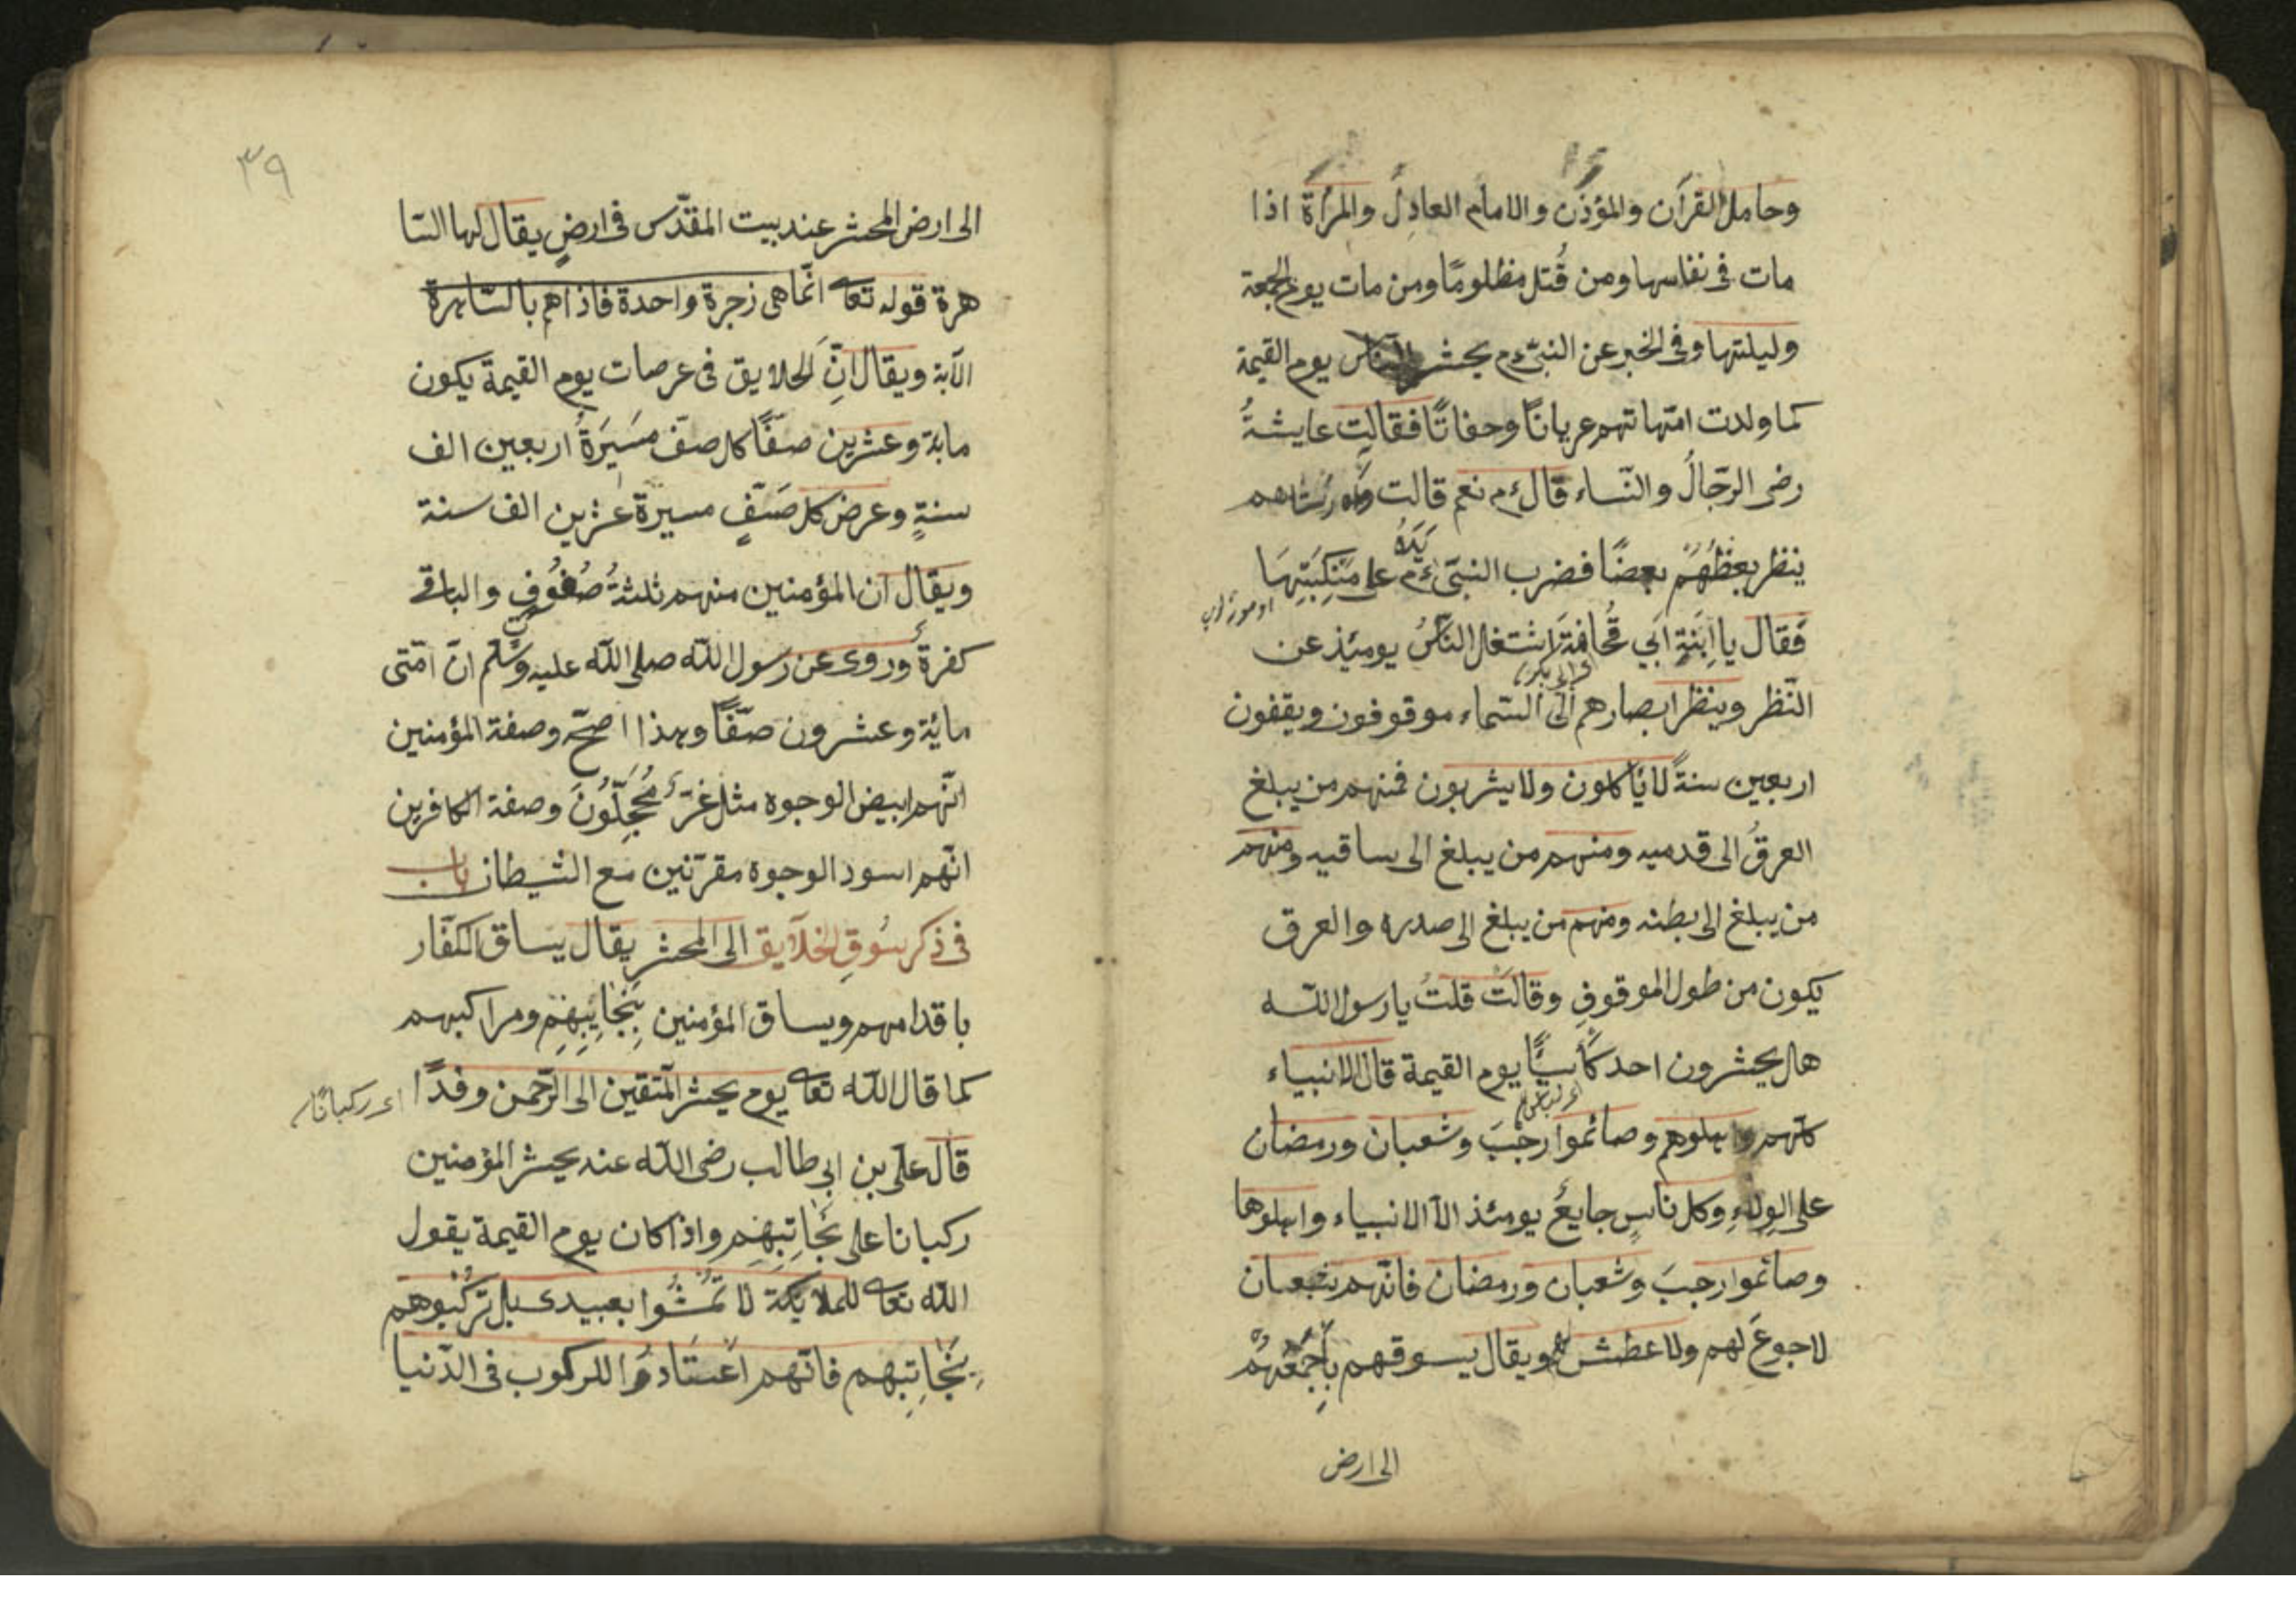 وحامل القرآن والمؤذن والامام العادل والمرأة اذا
مات فى نفاسها ومن قُتل مظلومًا ومن مات يوم الجمعة
وليلتها وفى الخبر عن النبىّ ءم يحشر الناس يوم القيمة
كما ولدت امّهاتهم عريانًا وحفاتًا فقالت عايشةُ
رضى الرّجالُ والنّساء قال ءم نعم قالت
ينظر بعظُهُم بعضًا فضرب النبىّ ءم يَدَهُ على مَنْكِبَتِهَا
فَقال يا اِبَنَةِ اَبي قُحافَةَ لاشتغل النّاسُ يومئِذ عن
النّظر وينظر ابصارهم الى السّماء موقوفون ويقفون
اربعين سنةً لا يأكلون ولا يشربون فمنهم من يبلغ
العرقُ الى قدميه ومنهم من يبلغ الى ساقيه ومنهم
من يبلغ الى بطنه ومنهم من يبلغ الى صدره والعرق
يكون من طول الموقوفِ وقالَتْ قلتُ يا رسول اللّه
هل يحشرون احد كَاسيًّا يوم القيمة قال الانبياء
كلّهم واهلوهم وصائموا رجبَ وشعبان ورمضان
على الوِلاءِ وكل ناسٍ جايعُ يومئذ الاّ الانبياء واهلوها
وصائموا رجبَ وشعبان ورمضان فانّهم شبعان
لا جوعَ لهم ولا عطش لهم ويقال يسوقهم بِأجْمَعُهُمْ
الى ارض
٣٩
الى ارض المحشر عند بيت المقدّس فى ارضٍ يقال لها السّا
هرة قوله تعا انّما هى زجرة واحدة فاذا هم بالسّاهرة
الآية ويقال انّ الخلايق فى عرصات يوم القيمة يكون
ماية وعشرين صفًّا كل صفّ مسَيَرَةُ اربعين الف
سنةٍ وعرض كل صَفٍّ مسيرة عشرين الف سنة
ويقال ان المؤمنين منهم ثلثةُ صُفُوفٍ والباقى
كفرة وروى عن رسول اللّه صلى اللّه عليه وسّلم انّ امّتى
مائة وعشرون صفًّا وهذا اصحّ وصفة المؤمنين
انّهم ابيض الوجوه مثل غرّ مُحَجِلُّونَ وصفة الكافرين
انّهم اسود الوجوه مقرّنين مع الشيطان باب
فى ذكر سُوقِ الخلآيق الى المحشر يقال يساق الكفّار
باقدامهم ويساق المؤمنين بِنَجَايِبِهِم ومراكبهم
كما قال اللّه تعا يوم يحشر المتّقين الى الرّحمن وفدًا اى ركبانًا
قال علىّ بن ابى طالب رضى اللّه عنه يحشر المؤمنين
ركبانا على نَجَائِبِهِم واذا كان يوم القيمة يقول
اللّه تعا للملايكة لا تَمْشُوا بعبيدى بل تركبُوهم
بِنَجَائِبِهم فانّهم اعْتَادوُا للركوب فى الدّنيا